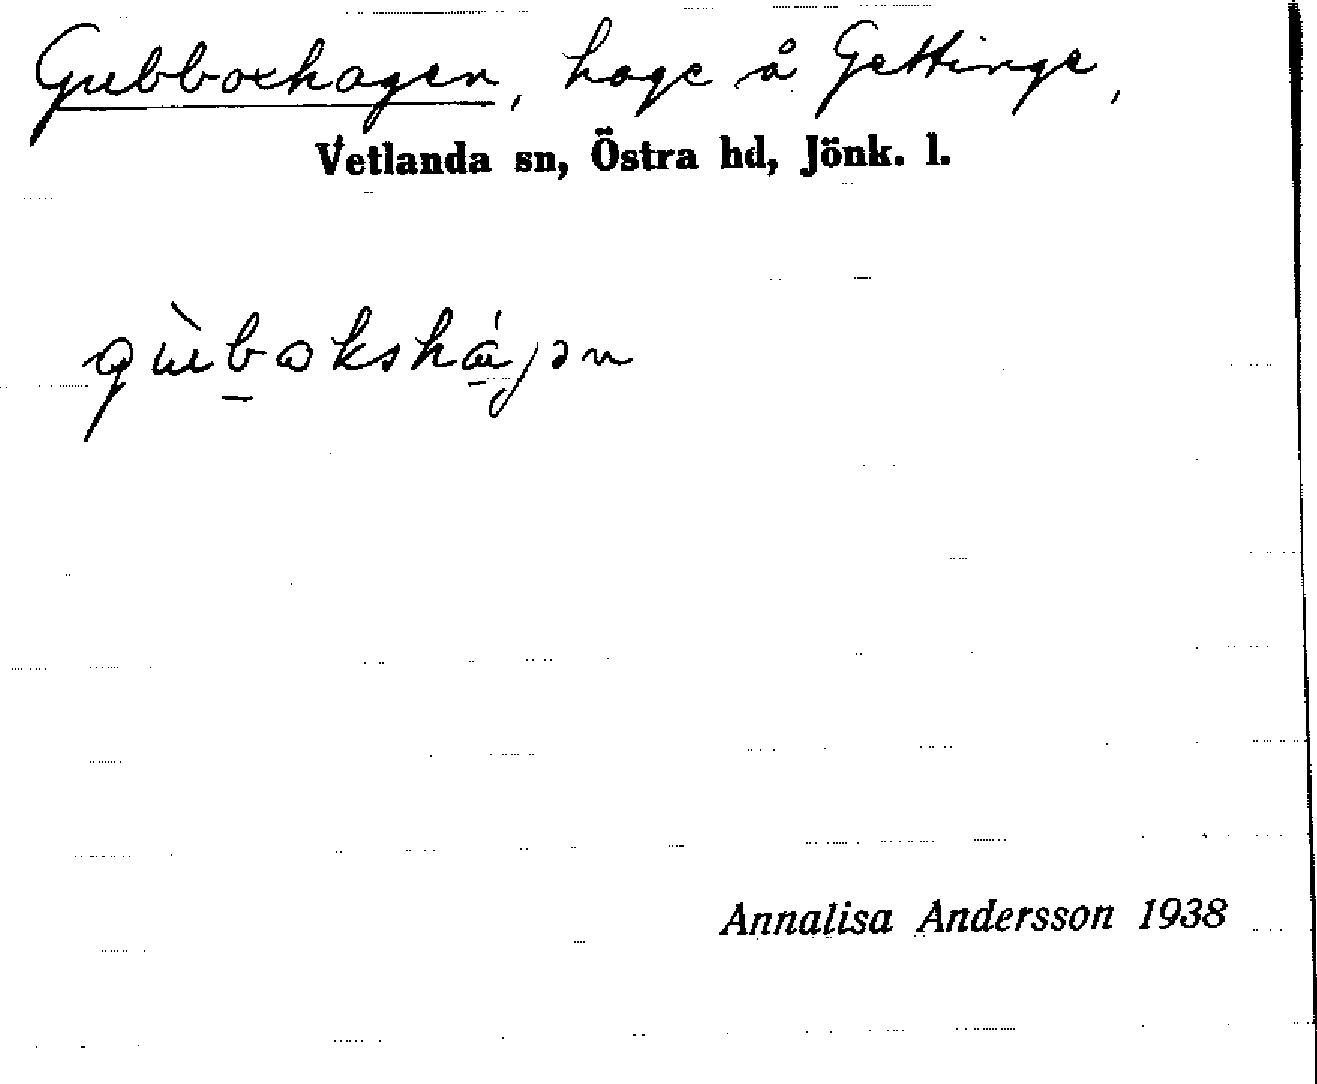 Gubboxhagen, hage å Gettinge,
Vetlanda sn, Östra hd, Jönk. l.
gùbakshájən
Annalisa Andersson 1938